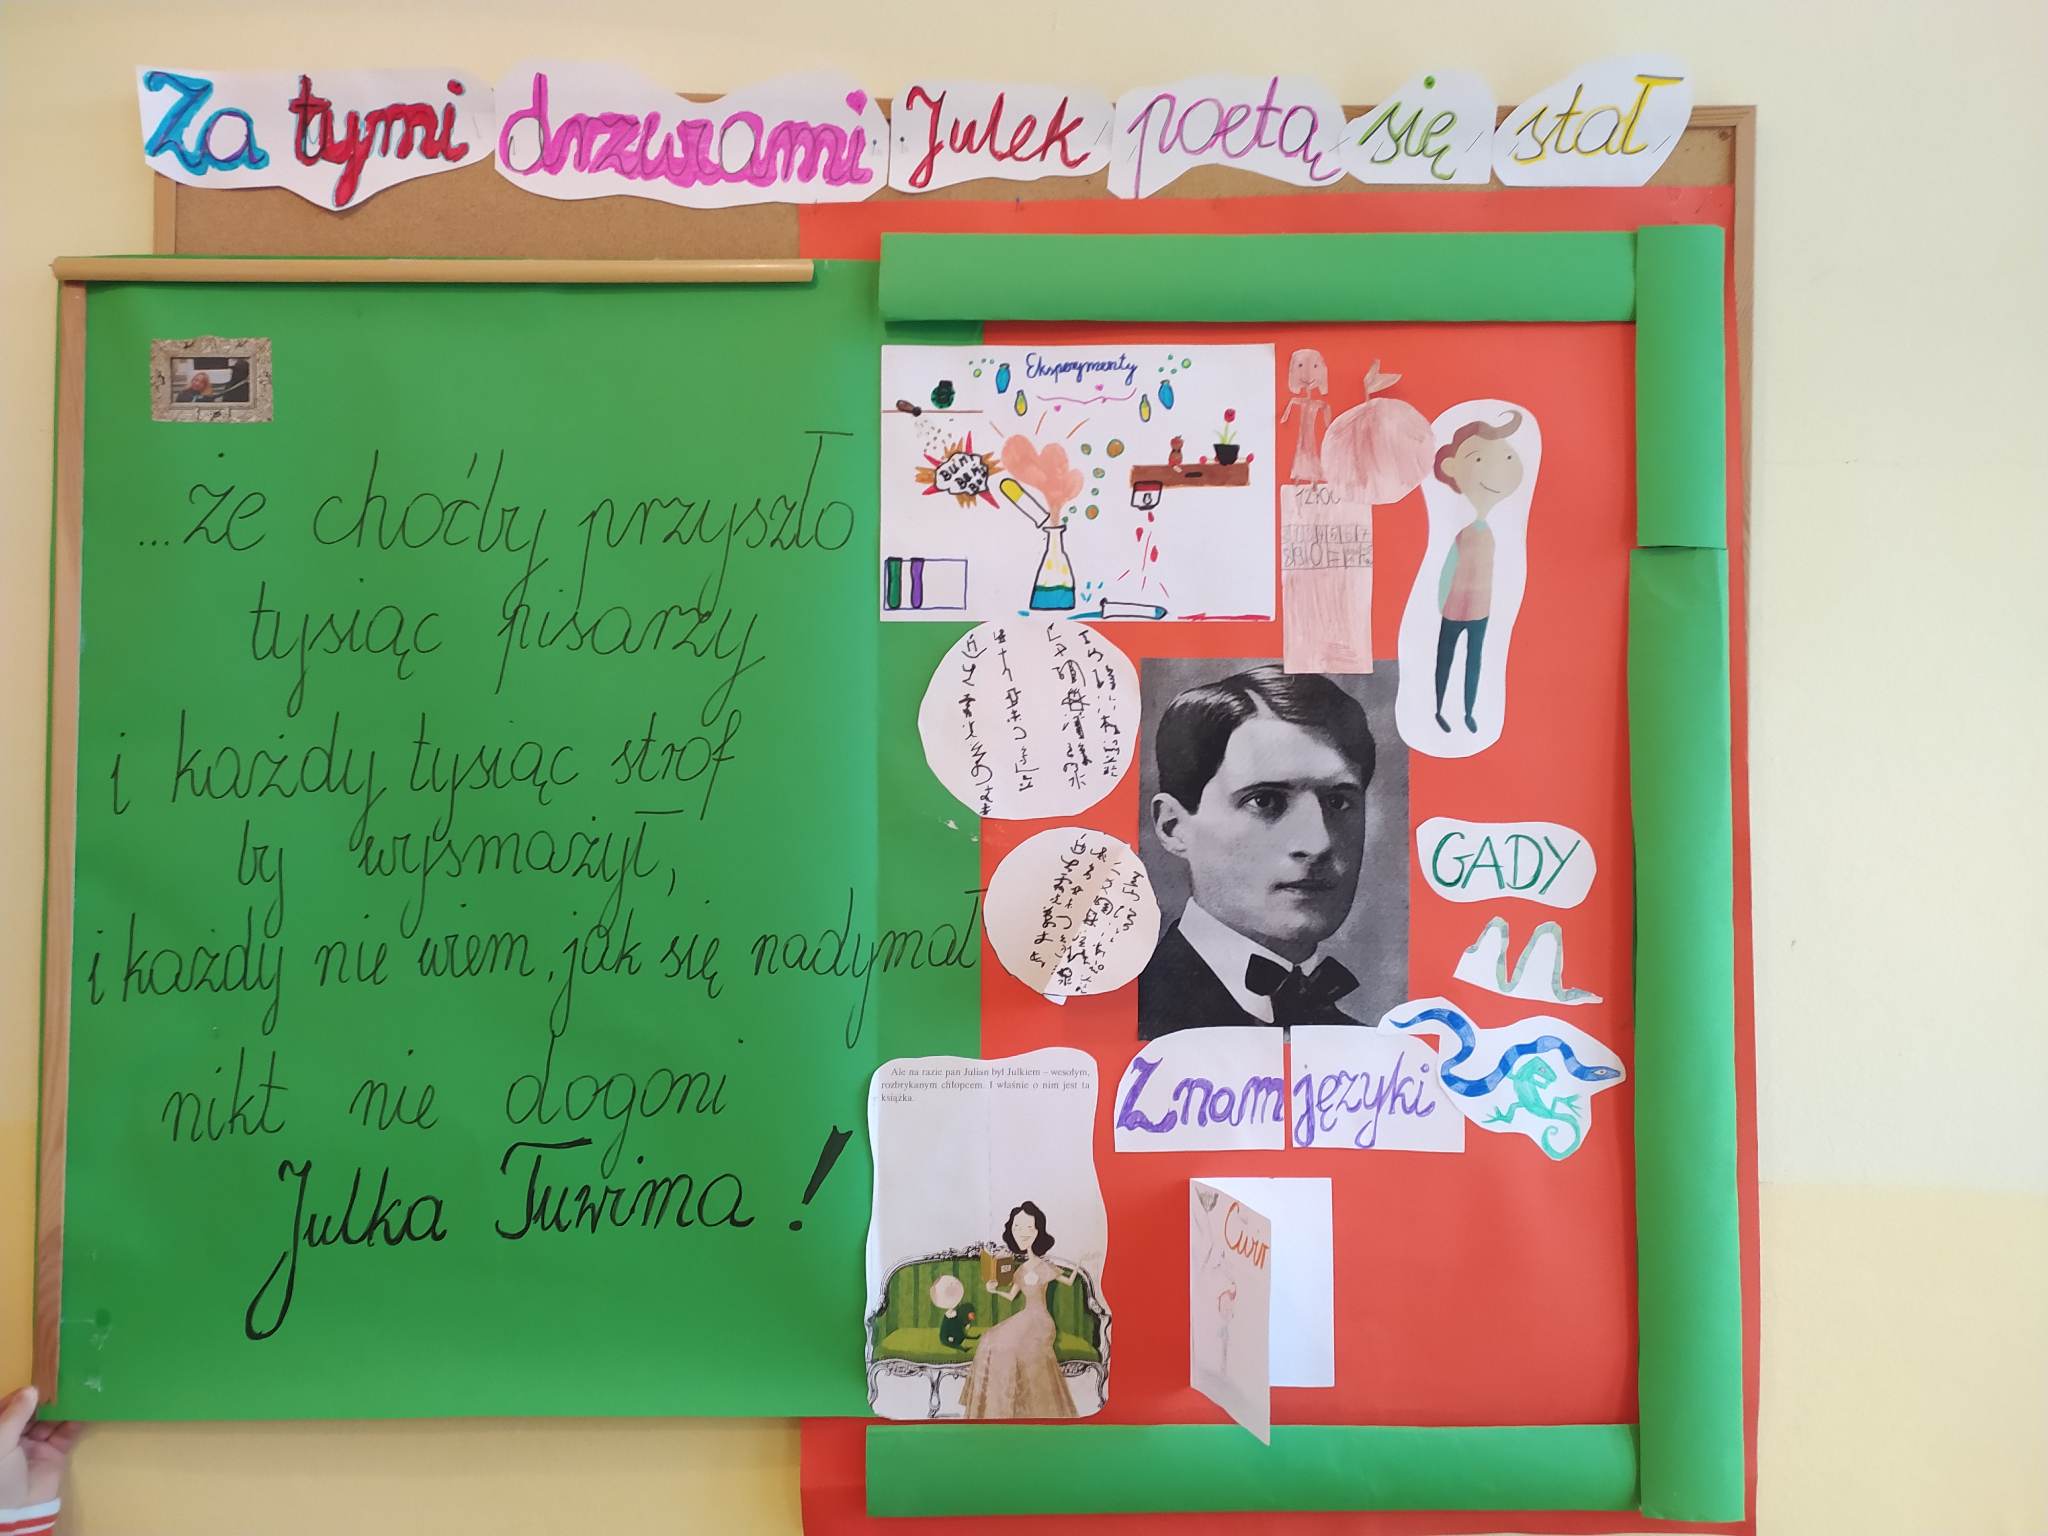 Za tymi drzwami Julek poetą się stał
...że choćby przyszło
tysiąc pisarzy
i każdy tysiąc strof
by wysmażył,
i każdy nie wiem, jak się nadymał
nikt nie dogoni
Julka Tuwima!
Eksperymenty
BUM
GADY
Znam języki
Ale na razie pan Julian był Julkiem – wesołym,
rozbrykanym chłopcem. I właśnie o nim jest ta
książka.